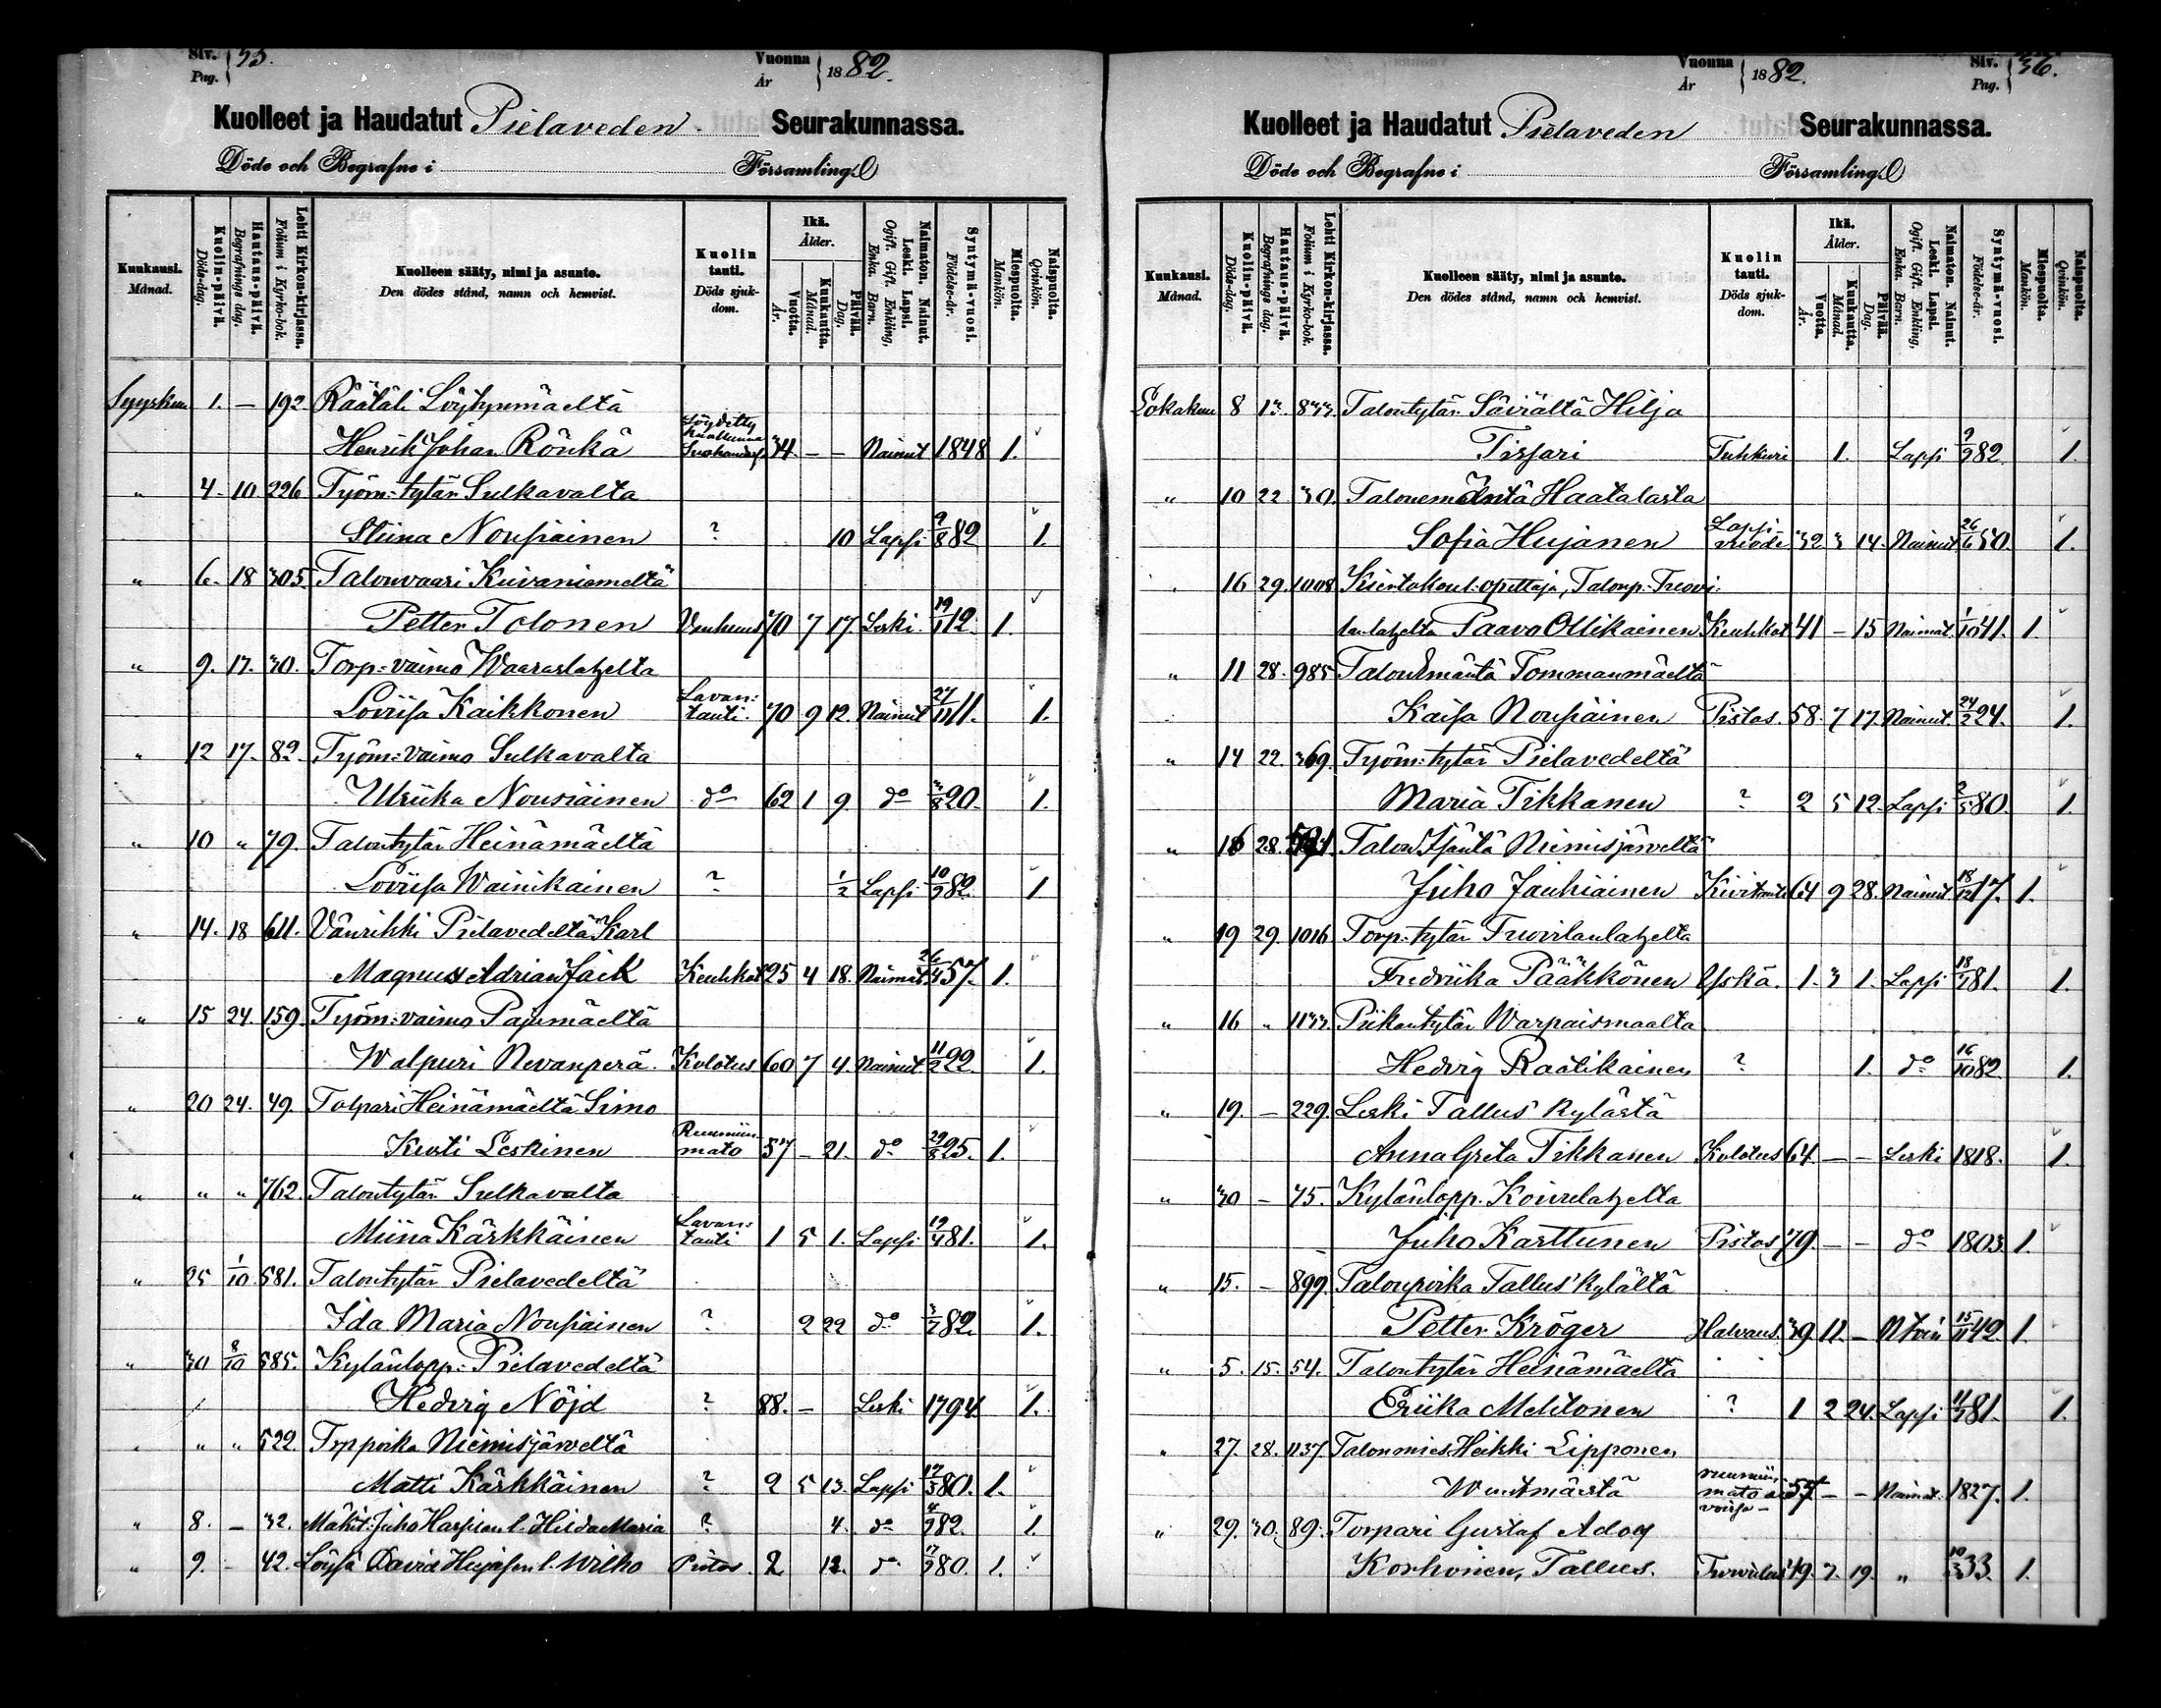 Siv. Pag. 35.
Vuonna År 1882.
Kuolleet ja Haudatut Pielaveden Seurakunnassa.
Döde och Begrafne i Församling.
Kuukausi. Månad.
Kuolin-päivä. Döds-dag.
Hautaus-päivä. Begrafnings dag.
Lehti Kirkon-kirjassa. Folium i Kyrko-bok.
Kuolleen sääty, nimi ja asunto. Den dödes stånd, namn och hemvist.
Kuolin tauti. Döds sjukdom.
Ikä. Ålder.
Vuotta. År.
Kuukautta. Månad.
Päivää. Dag.
Naimaton. Nainut. Leski. Lapsi. Ogift. Gift. Enkling, Enka. Barn.
Syntymä-vuosi. Födelse-år.
Miespuolta. Mankön.
Naispuolta. Qvinkön.
Syyskuu 1. — 192. Räätäli Löytynmäeltä
Henrik Johan Rönkä Löydetty kuolleena 34 — — Nainut 1848 1.
" 4. 10 226 Työm: tytär Sulkavalta
Stiina Nousiainen ? 10 Lapsi 9/8 82 1.
" 6. 18 305. Talonvaari Kiivaniemeltä
Petter Tolonen Vanhuus 70 7 17. Leski. 19/1 12. 1.
" 9. 17. 30. Torp: vaimo Waaraslahelta
Loviisa Kaikkonen Lavantauti. 70 9 12. Nainut 27/11 11. 1.
" 12 17. 82. Työm: vaimo Sulkavalta
Ulriika Nousiainen do 62 1 9. do 3/8 20. 1.
" 10 " 79. Talontytär Heinämäeltä
Loviisa Wainikainen ? 1/2 Lapsi 10/9 82. 1
" 14. 18 611. Vänrikki Pielavedeltä Karl
Magnus Adrian Jäik Keuhkot 25 4 18. Naimat. 26/4 57. 1.
" 15 24. 159. Työm: vaimo Pajumäeltä
Walpuri Nevanperä. Kolotus 60 7 4. Nainut 11/2 22. 1.
" 20 24. 49. Tolpari Heinämäeltä Simo
Kusti Leskinen Ruumiinmato 57 — 21. do 29/8 25. 1.
" " " 762. Talontytär Sulkavalta
Miina Kärkkäinen Lavantauti 1 5 1. Lapsi 19/4 81. 1.
" 25 1/10 581. Talontytär Pielavedeltä
Ida Maria Nousiainen ? 2 22 do 3/7 82. 1.
" 30 8/10 585. Kylänlopp: Pielavedeltä
Hedvig Nöjd ? 88. — Leski 1794. 1.
" " " 522. Trppoika Niemisjärveltä
Matti Kärkkäinen ? 2 5 13. Lapsi 17/3 80. 1.
" 8. — 32. Mäkit: Juho l. Hilda Maria ? 4. do 4/9 82. 1.
" 9. - 42. David l. Wilho Pistos. 2 12. do 17/9 80. 1.
Vuonna År 1882.
Siv. Pag. 36.
Kuolleet ja Haudatut Pielaveden Seurakunnassa.
Döde och Begrafne i Församling.
Kuukausi. Månad.
Kuolin-päivä. Döds-dag.
Hautaus-päivä. Begrafnings dag.
Lehti Kirkon-kirjassa. Folium i Kyrko-bok.
Kuolleen sääty, nimi ja asunto. Den dödes stånd, namn och hemvist.
Kuolin tauti. Döds sjukdom.
Ikä. Ålder.
Vuotta. År.
Kuukautta. Månad.
Päivää. Dag.
Naimaton. Nainut. Leski. Lapsi. Ogift. Gift. Enkling, Enka. Barn.
Syntymä-vuosi. Födelse-år.
Miespuolta. Mankön.
Naispuolta. Qvinkön.
Lokakuu 8 13 833. Talontytär Säviältä Hilja
Tissari Tuhkuri 1. Lapsi 9/9 82 1.
" 10 22 30. Talonemäntä Haatalasta
Sofia Hujanen Lapsivuode 32 3 14. Nainut 26/6 50. 1.
" 16 29. 1008 Kiertokoul: opettaja, Talonp: Tuovilanlahelta Paavo Ollikainen Keuhkot 41 — 15 Naimat. 1/10 41. 1.
" 11 28. 985 Talon Emäntä Tommanmäeltä
Kaisa Nousiainen Pistos. 58. 7 17. Nainut. 24/2 24. 1.
" 14 22. 369. Työm: tytär Pielavedeltä
Maria Tikkanen ? 2 5 12. Lapsi 2/5 80. 1.
" 16 28. Talon Isäntä Niemisjärveltä
Juho Jauhiainen Kivitauti 64 9 28. Nainut. 18/12 17. 1.
" 19 29. 1016 Torp: tytär Tuovilanlahelta
Fredriika Pääkkönen Yskä. 1. 3 1. Lapsi 18/7 81. 1.
" 16 " 1133. Piikantytär Warpaismaalta
Hedvig Raatikainen ? 1. do 16/10 82. 1.
" 19. — 229. Leski Tallus' kylästä
Anna Greta Tikkanen Kolotus 64. — — Leski 1818. 1.
" 30 — 75. Kylänlopp. Koivulahelta
Juho Karttunen Pistos 79. — — do 1803. 1.
" 15. — 899. Talonpoika Tallus' kylältä
Petter Kröger Halvaus. 39 11. — 15/11 42 1.
" 5. 15. 54. Talontytär Heinämäeltä
Eriika Mehtonen ? 1 2 24. Lapsi 11/7 81. 1.
" 27. 28. 1137. Talonmies Heikki Lipponen,
57 — — Naimat. 1827. 1.
" 29. 30. 89. Torpari Gustaf Adolf
Korhonen, Tallus. 49. 7. 19. " 10/3 33. 1.